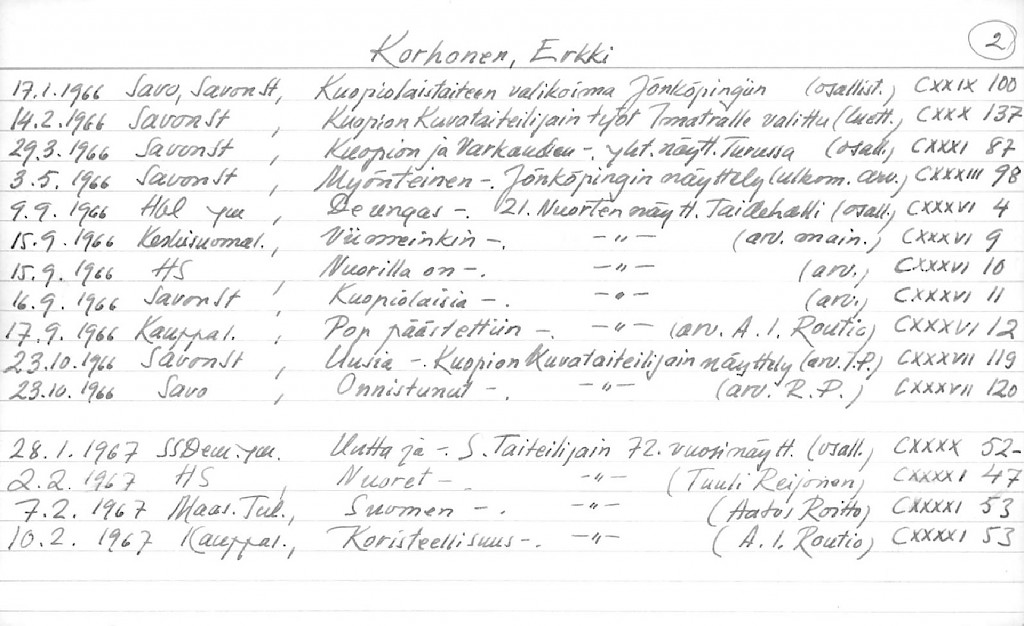 2
Korhonen, Erkki
17.1.1966 Savo, SavonSt, Kuopiolaistaiteen valikoima Jönköpingiin (osallist.) CXXIX 100
14.2.1966 SavonSt , Kuopion Kuvataiteilijain työt Imatralle valittu (luett.) CXXX 137
29.3.1966 SavonSt , Kuopion ja Varkauden -. yht.näytt. Turussa (osall.) CXXXI 87
3.5.1966 SavonSt , Myönteinen -. Jönköpingin näyttely (ulkom. arv.) CXXXIII 98
9.9.1966 Hbl ym , De ungas -. 21. Nuorten näytt. Taidehalli (osall.) CXXXVI 4
15.9.1966 Keskisuomal., Viimeinkin -. -"- (arv. main.) CXXXVI 9
15.9.1966 HS , Nuorilla on -. -"- (arv.) CXXXVI 10
16.9.1966 SavonSt , Kuopiolaisia -. -"- (arv.) CXXXVI 11
17.9.1966 Kauppal. , Pop päästettiin -. -"- (arv. A.I. Routio) CXXXVI 12
23.10.1966 SavonSt , Uusia -. Kuopion Kuvataiteilijain näyttely (arv. T.P.) CXXXVII 119
23.10.1966 Savo , Onnistunut -. -"- (arv. R.P.) CXXXVII 120
28.1.1967 SSDem. ym. Uutta ja -. S. Taiteilijain 72. vuosinäytt. (osall.) CXXXX 52-
2.2.1967 HS , Nuoret -. -"- (Tuuli Reijonen) CXXXXI 47
7.2.1967 Maas. Tul., Suomen -. -"- (Aatos Roitto) CXXXXI 53
10.2.1967 Kauppal., Koristeellisuus -. -"- (A.I. Routio) CXXXXI 53